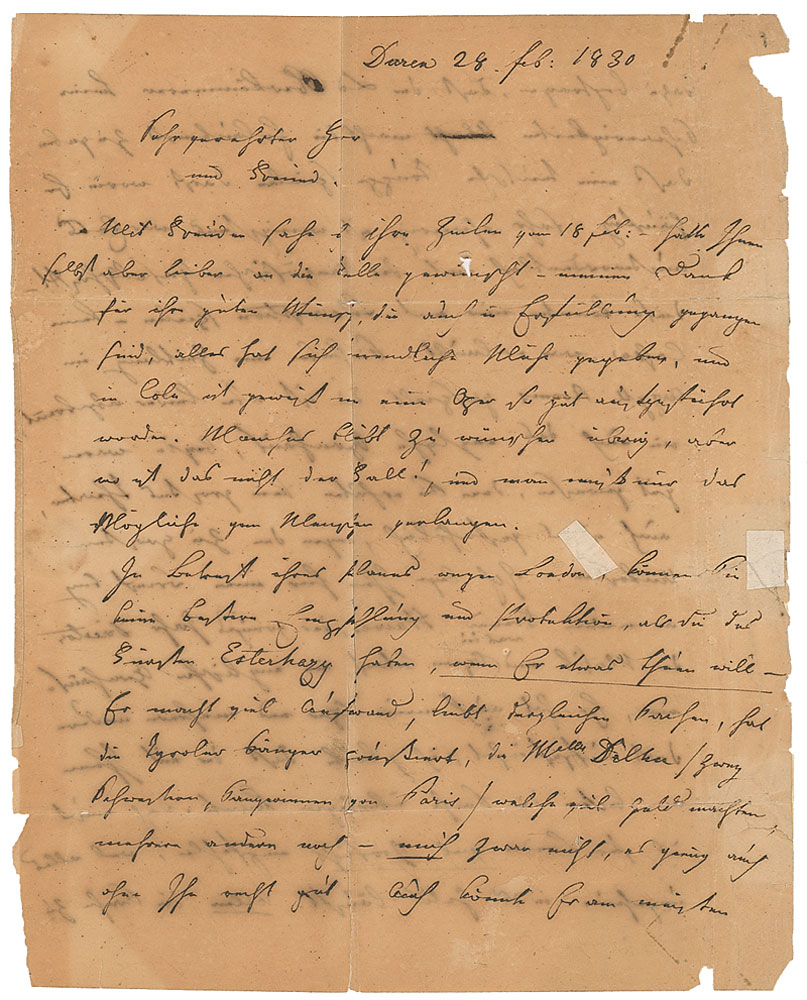 Düren 28 feb: 1830
Sehrgeehrter Herr
und Freund!
Mit Freuden sahe i ihre Zeilen vom 18 feb: – hätte Ihnen
selbst aber lieber an die Stelle gewünscht – meinen Dank
für ihre guten Wünsche, die auch in Erfüllung gegangen
sind, alles hat sich unendliche Mühe gegeben, und
in Cöln ist gewiß nie eine Oper so gut aufgeführt
worden. Manches bleibt zu wünschen übrig, aber
wo ist das nicht der Fall!, und man muß nur das
Mögliche vom Menschen verlangen.
In Betreff ihres Planes wegen London, können Sie
keine bessere Empfehlung und Protektion, als die des
Fürsten Esterhazy haben, wenn Er etwas thuen will –
Er macht viel Aufwand, liebt dergleichen Sachen, hat
die Tyroler Sänger poussiert, die Mlles / zwey
Schwestern, Sängerinnen von Paris / welche viel Geld machten,
mehrere andere noch – mich zwar nicht, es gieng auch
ohne Ihn recht gut. Auch könnte Er am meisten